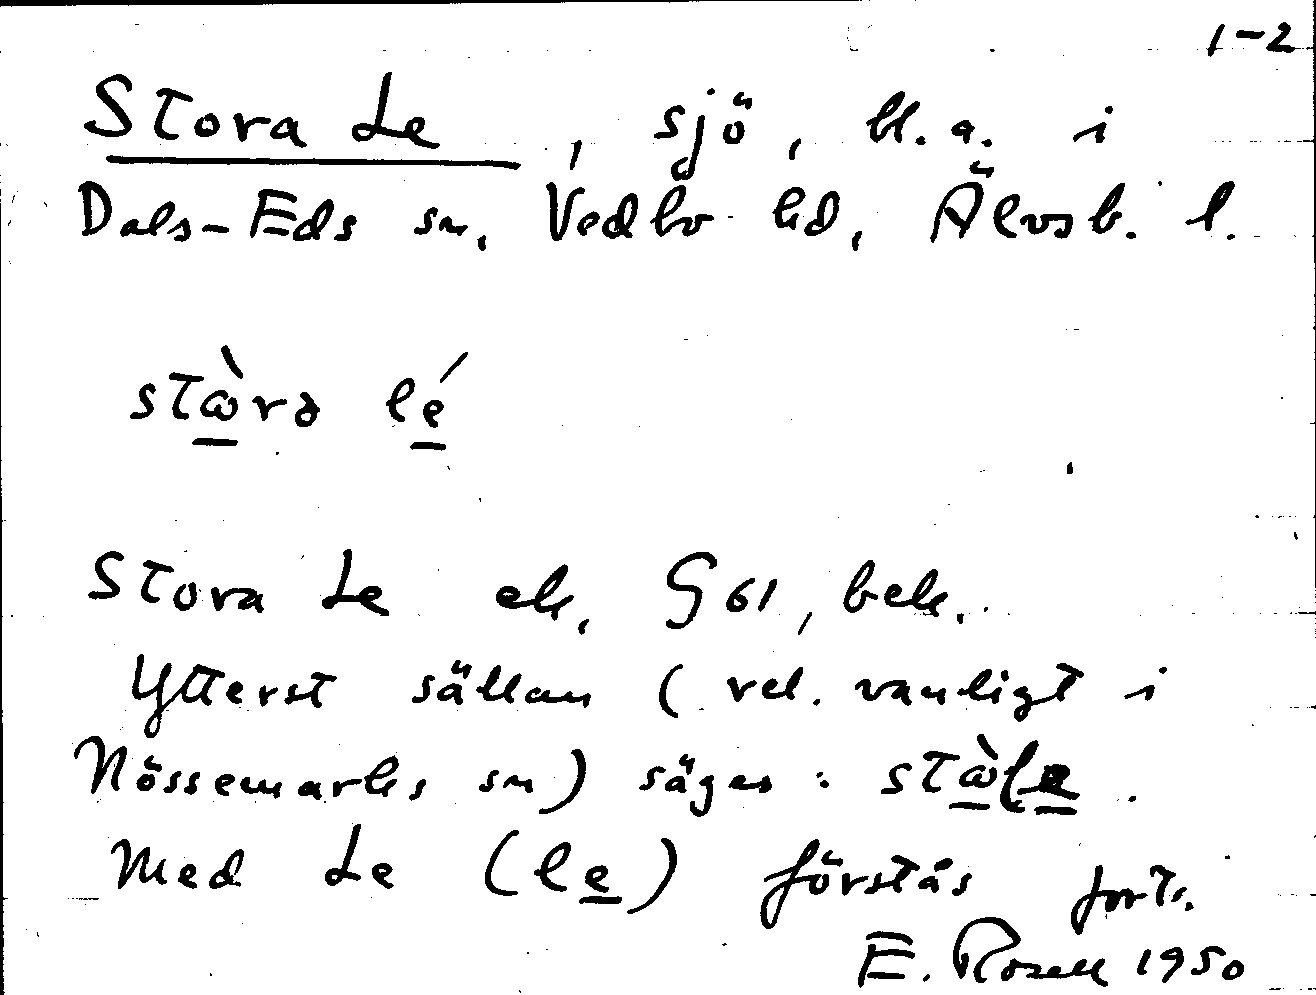 1-2
Stora Le, sjö, bl. a. i
Dals-Eds sn, Vedbo hd, Älvsb. l.
stɷ̀rə lé
Stora Le ek, G 61, bek.
Ytterst sällan (rel. vanligt i
Nössemarks sn) säges: stɷ̀le.
Med Le (le) förstås forts.
E. Rosell 1950